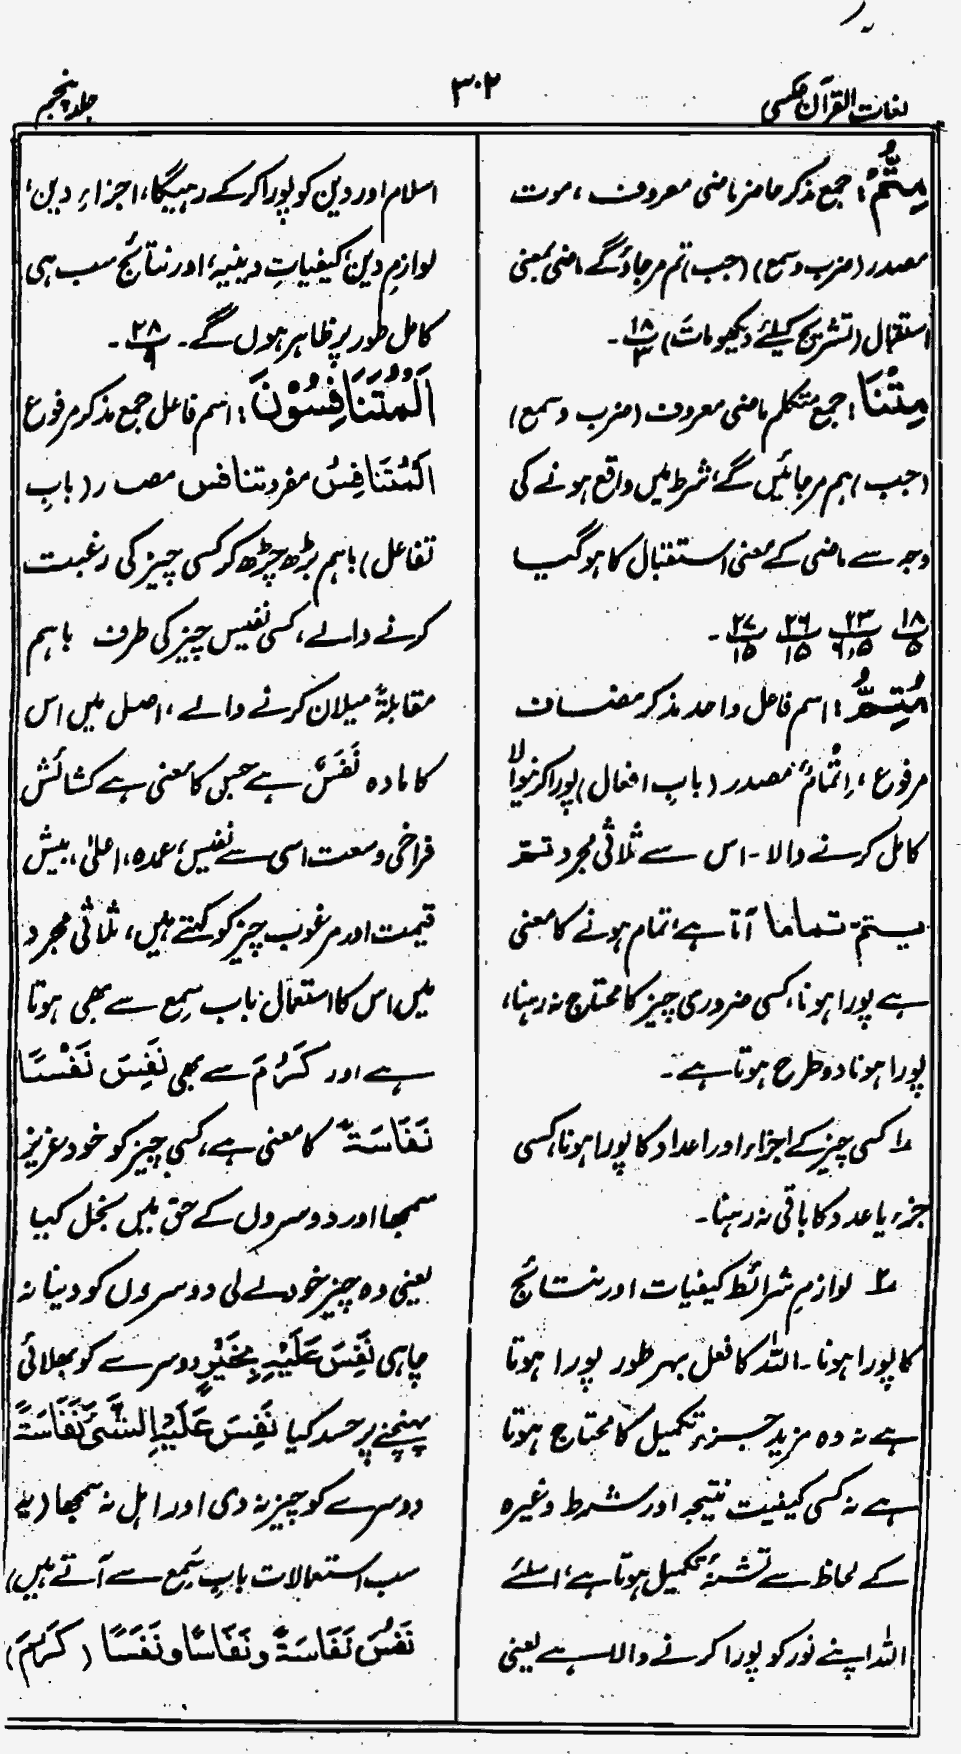 لغات القرآن عکسی
۳۰۲
جلد پنجم
مِتُّمْ: جمع مذکر حاضر ماضی معروف، موت
مصدر (ضرب و سمع) (جب) تم مر جاؤ گے ماضی بمعنی
استقبال (تشریح کیلئے دیکھو مَاتَ) ۱۸/۳۔
مِتْنَا: جمع متکلم ماضی معروف (ضرب و سمع)
(جب) ہم مر جائیں گے، شرط میں واقع ہونے کی
وجہ سے ماضی کے معنی استقبال کا ہو گیا
۱۸/۵ ۲۳/۶،۵ ۲۶/۱۵ ۲۷/۱۵۔
مُتِمُّ: اسم فاعل واحد مذکر مضاف
مرفوع، اِتْمَامٌ مصدر (بابِ افعال) پورا کرنیوالا
کامل کرنے والا۔ اس سے ثُلاثی مجرد تَمَّ
یتم تماما آتا ہے، تمام ہونے کا معنی
ہے پورا ہونا، کسی ضروری چیز کا محتاج نہ رہنا،
پورا ہونا دو طرح ہوتا ہے۔
۱ کسی چیز کے اجزاء اور اعداد کا پورا ہونا، کسی
جزء یا عدد کا باقی نہ رہنا۔
۲ لوازمِ شرائط کیفیات اور نتائج
کا پورا ہونا۔ اللہ کا فعل بہر طور پورا ہوتا
ہے نہ وہ مزید جزء تکمیل کا محتاج ہوتا
ہے نہ کسی کیفیت نتیجہ اور شرط وغیرہ
کے لحاظ سے تشنۂ تکمیل ہوتا ہے، اسلئے
اللہ اپنے نور کو پورا کرنے والا ہے یعنی
اسلام اور دین کو پورا کر کے رہیگا، اجزاءِ دین،
لوازمِ دین، کیفیاتِ دینیہ، اور نتائج سب ہی
کامل طور پر ظاہر ہوں گے۔ ۲۸/۹۔
اَلْمُتَنَافِسُوْنَ: اسم فاعل جمع مذکر مرفوع
اَلْمُتَنَافِسُ مفرد تنافس مصدر (بابِ
تفاعل) باہم بڑھ چڑھ کر کسی چیز کی رغبت
کرنے والے، کسی نفیس چیز کی طرف باہم
مقابلۃً میلان کرنے والے، اصل میں اس
کا مادہ نَفَسٌ ہے جس کا معنی ہے کشائش
فراخی وسعت اسی سے نفیس، عمدہ، اعلیٰ، بیش
قیمت اور مرغوب چیز کو کہتے ہیں، ثلاثی مجرد
میں اس کا استعمال باب سمع سے بھی ہوتا
ہے اور کَرُمَ سے بھی نَفِسَ نَفْسًا
نَفَاسَۃً کا معنی ہے، کسی چیز کو خود عزیز
سمجھا اور دوسروں کے حق میں بخل کیا
یعنی وہ چیز خود لے لی دوسروں کو دینا نہ
چاہی نَفِسَ عَلَیْہِ بِخَیْرٍ دوسرے کو بھلائی
پہنچنے پر حسد کیا نَفِسَ عَلَیْہِ الشَّیْءَ نَفَاسَۃً
دوسرے کو چیز نہ دی اور اہل نہ سمجھا (یہ
سب استعمالات بابِ سَمِعَ سے آتے ہیں)
نَفُسَ نَفَاسَۃً و نَفَاسًا و نَفَسًا (کَرُمَ)